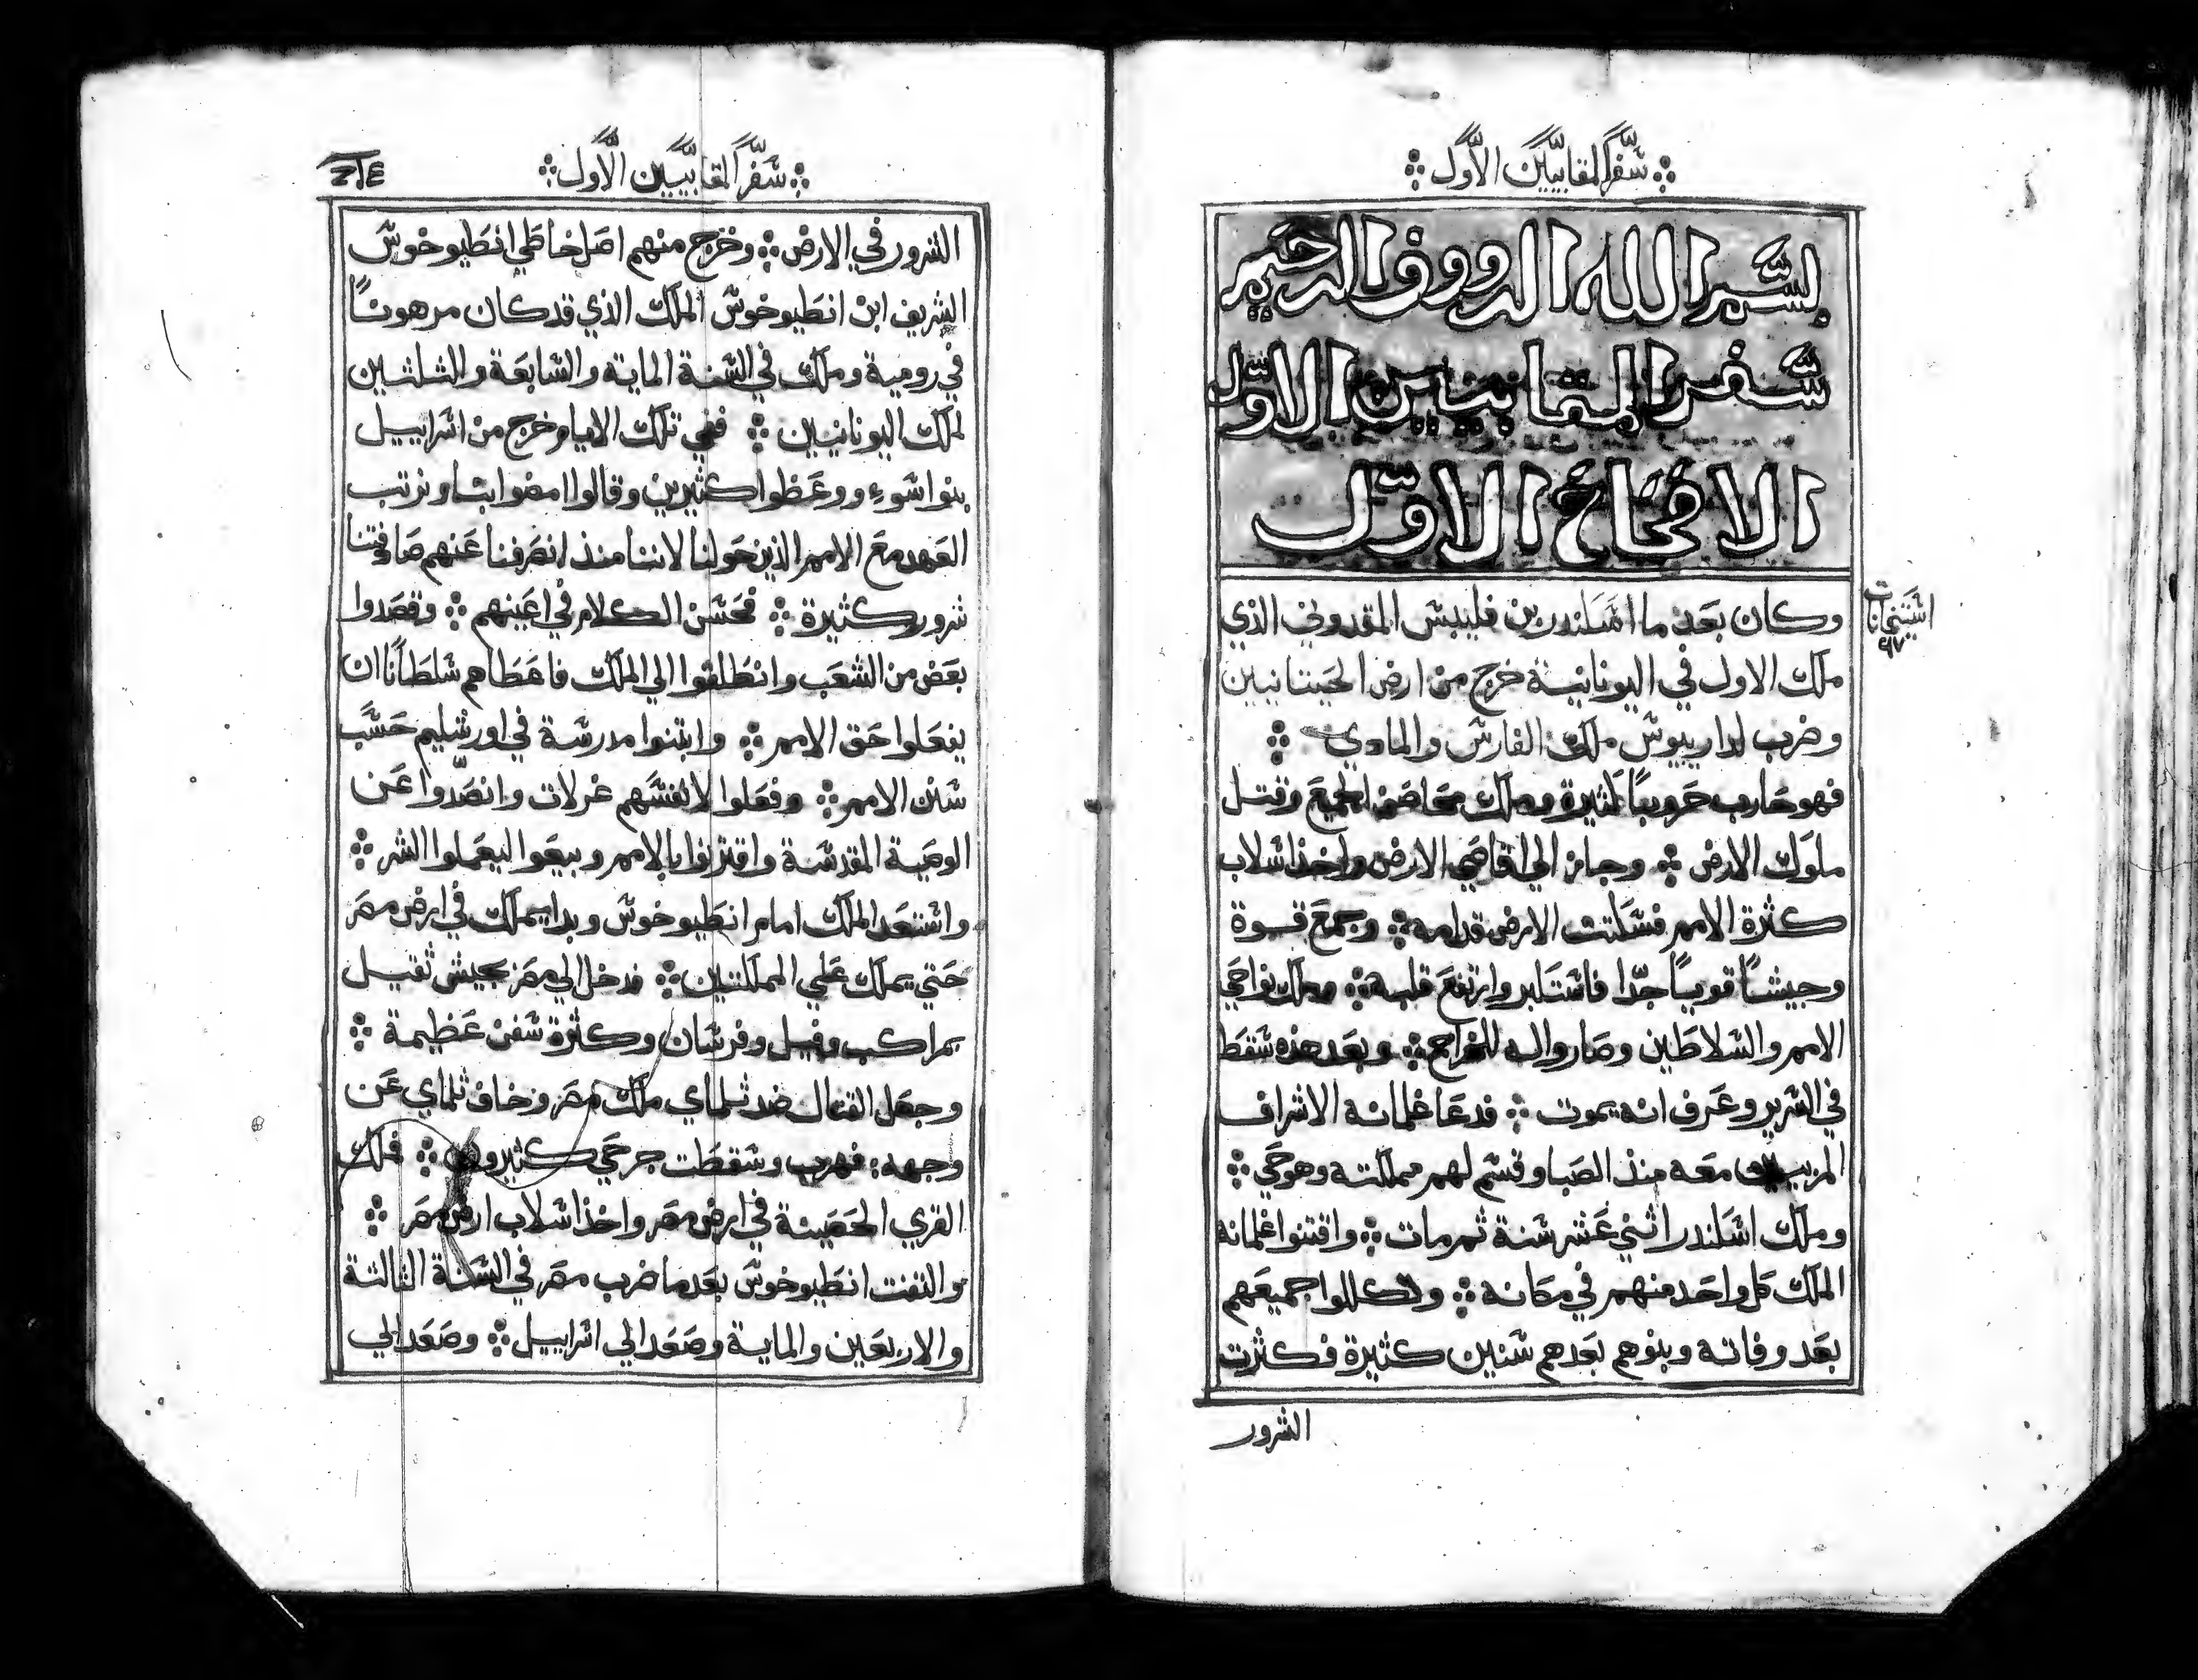 سفر المقابيين الأول
بسم الله الرووف الرحيم
سفر المقابيين الاول
الافتتاح الاول
وكان بعد ما اسكندر بن فليبس المقدوني الذي
ملك الاول في اليونانية خرج من ارض الحيتانيين
وضرب لداريوس ملك الفارس والمادي
فهو حارب حروبا كثيرة وملك محاصن الجميع وقتل
ملوك الارض وجاز الي اقاصي الارض واخذ اسلاب
كثرة الامم فسكتت الارض قدامه وجمع قوة
وجيشا قويا جدا فاستكبر وارتفع قلبه وملك نواحي
الامم والسلاطين وصاروا له للخراج وبعد هذه سقط
في السرير وعرف انه يموت فدعا غلمانه الاشراف
المربيين معه منذ الصبا وقسم لهم مملكته وهو حي
وملك اسكندر اثني عشر سنة ثم مات واقتنوا غلمانه
الملك كل واحد منهم في مكانه وتكللوا جميعهم
بعد وفاته وبنوهم بعدهم سنين كثيرة فكثرت
الشرور
سفر المقابيين الأول
الشرور في الارض وخرج منهم اصل خاطي انطيوخوس
الشريف ابن انطيوخوس الملك الذي قد كان مرهونا
في رومية وملك في السنة الماية والسابعة والثلثين
لملك اليونانيين ففي تلك الايام خرج من اسراييل
بنوا سوء ووعظوا كثيرين وقالوا امضوا بنا ونرتب
العهد مع الامم الذين حولنا لاننا منذ انصرفنا عنهم صادفتنا
شرور كثيرة فحسن الكلام في اعينهم وقصدوا
بعض من الشعب وانطلقوا الي الملك فاعطاهم سلطانا ان
يفعلوا حق الامم وابتنوا مدرسة في اورشليم حسب
سنن الامم وفعلوا لانفسهم غرلات وانصدوا عن
الوصية المقدسة واقترنوا بالامم وبيعوا ليعملوا الشر
واستعد الملك امام انطيوخوس وبدا يملك في ارض مصر
حتي يملك علي المملكتين فدخل الي مصر بجيش ثقيل
بمراكب وفيل وفرسان وكثرة سفن عظيمة
وجعل القتال ضد ثلماي ملك مصر وخاف ثلماي عن
وجهه فهرب وسقطت جرحي كثيرون فملك
القري الحصينة في ارض مصر واخذ اسلاب ارض مصر
والتفت انطيوخوس بعد ما ضرب مصر في السنة الثالثة
والاربعين والماية وصعد الي اسراييل وصعد الي